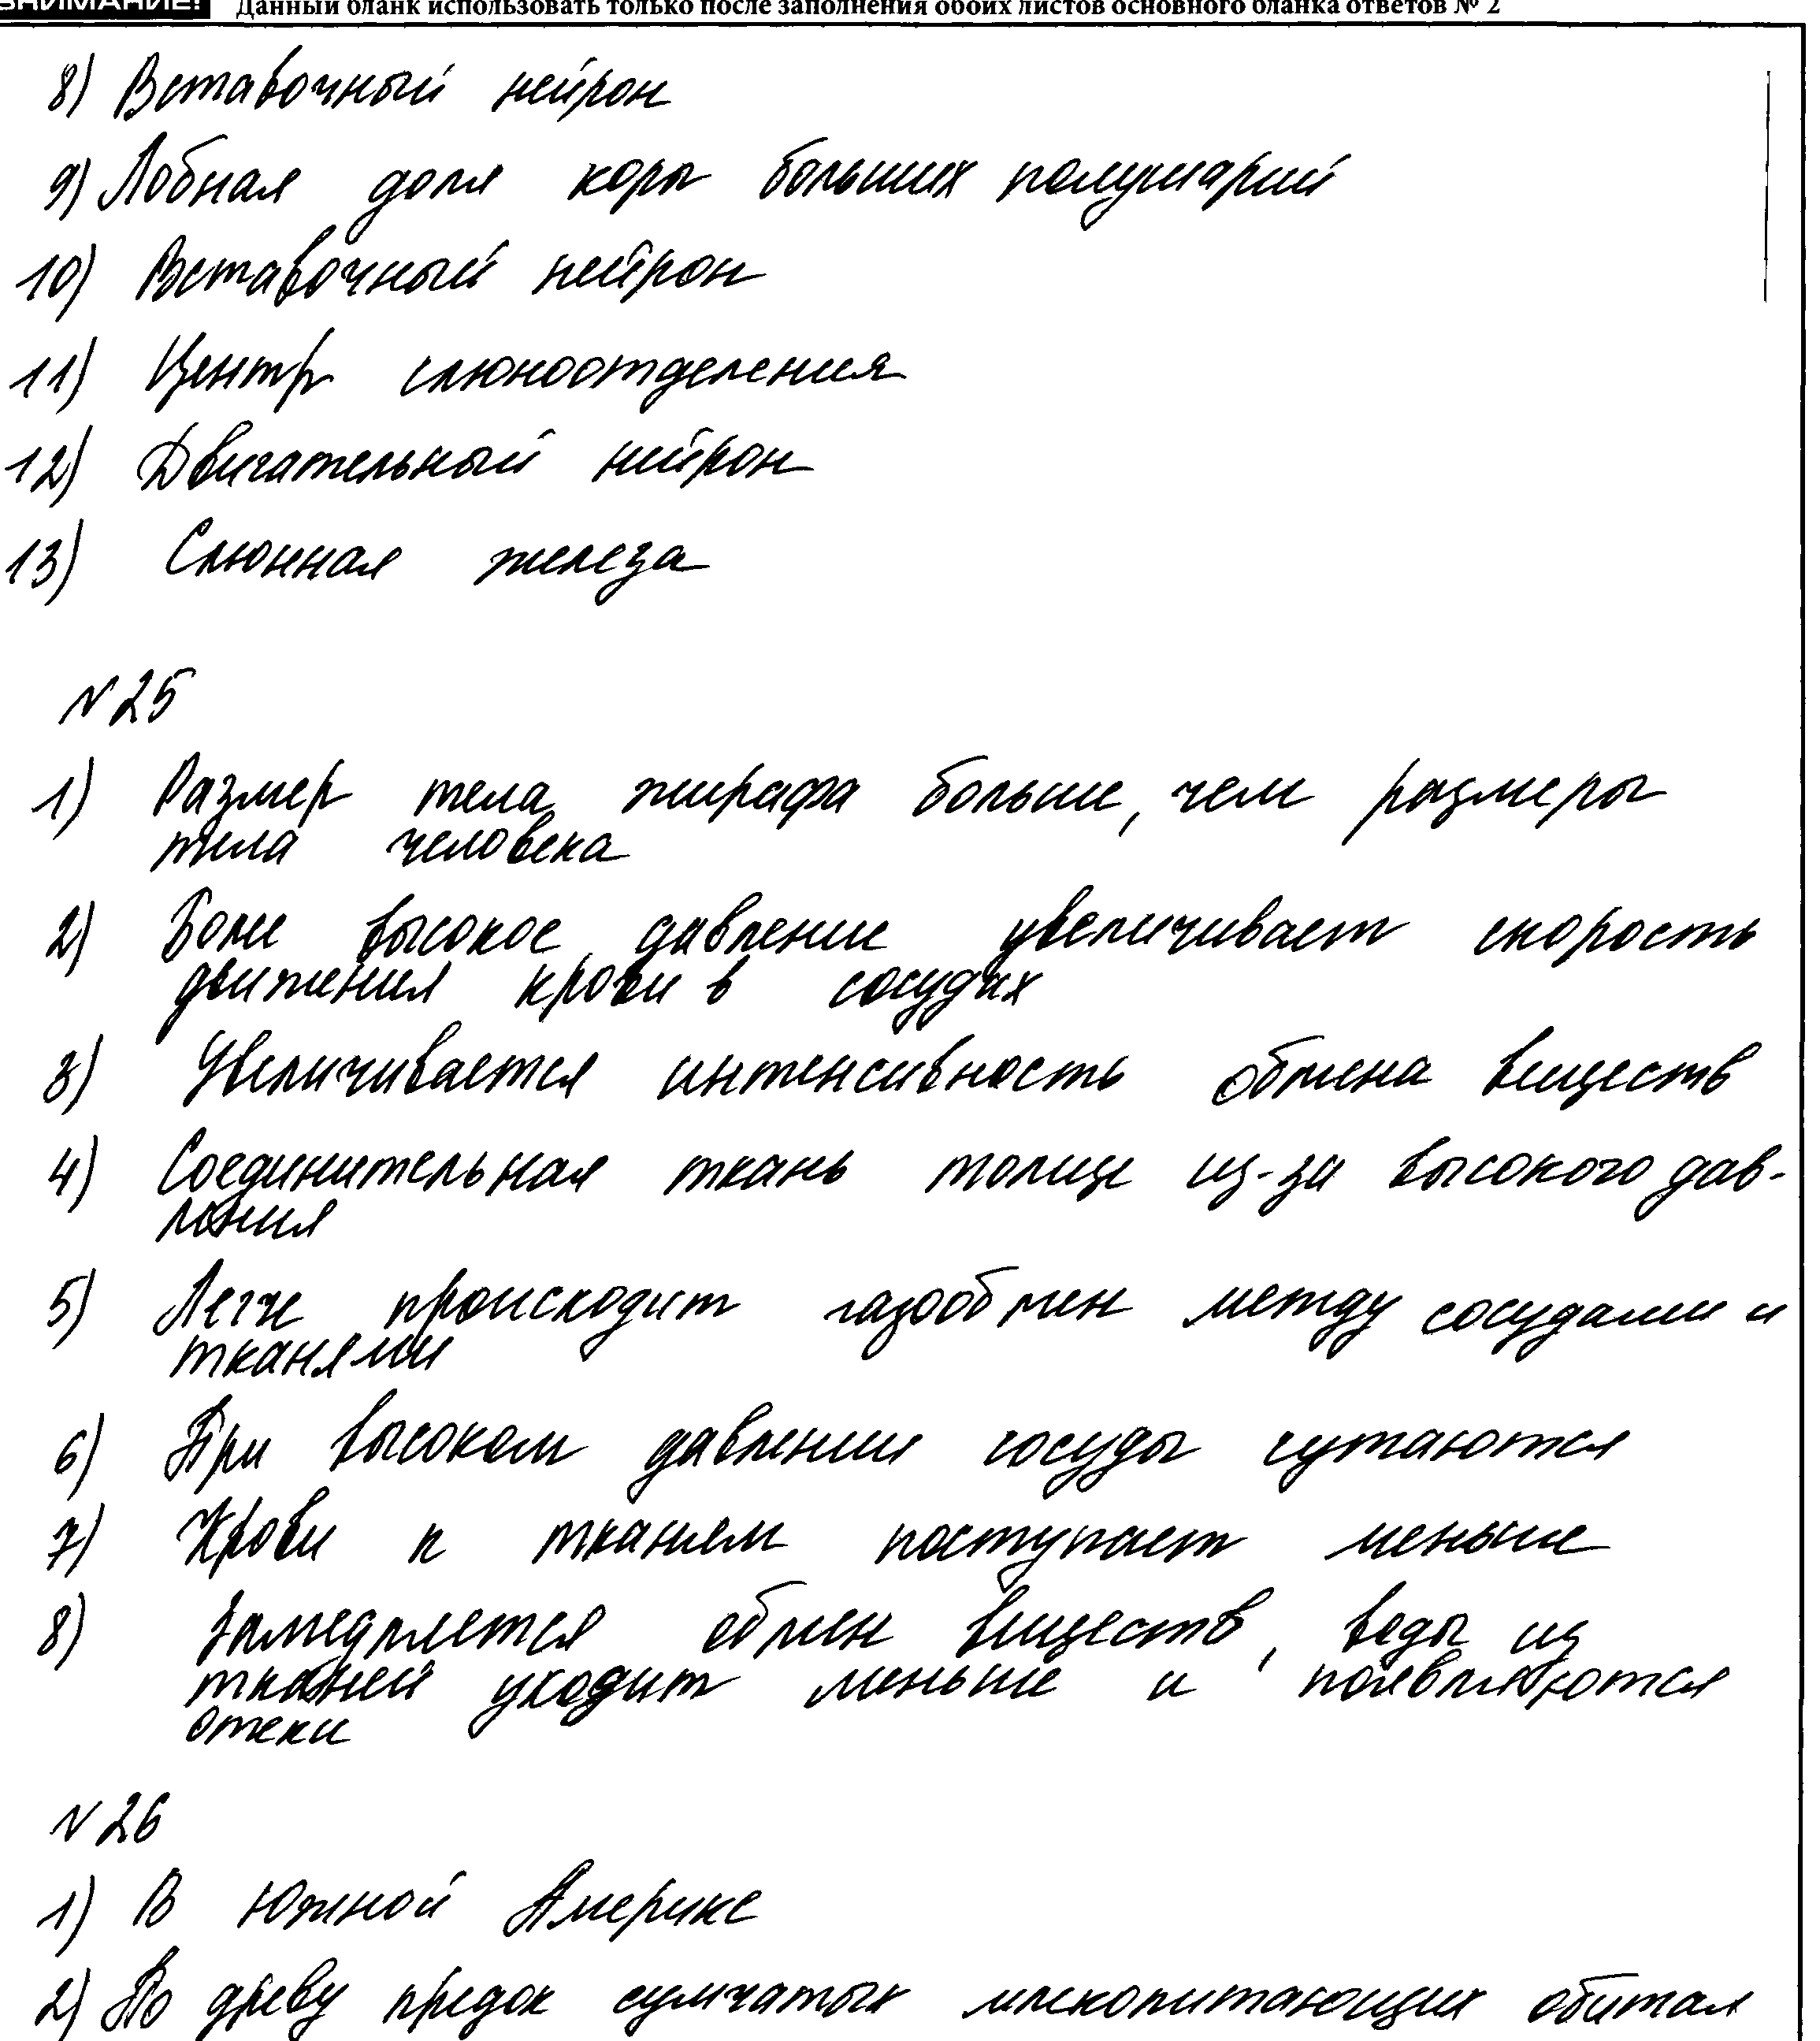 ВНИМАНИЕ! Данный бланк использовать только после заполнения обоих листов основного бланка ответов № 2
8) Вставочный нейрон
9) Лобная доля коры больших полушарий
10) Вставочный нейрон
11) Центр слюноотделения
12) Двигательный нейрон
13) Слюнная железа
№25
1) Размер тела жирафа больше, чем размеры
тела человека
2) Боле высокое давление увеличивает скорость
движения крови в сосудах
3) Увеличивается интенсивность обмена веществ
4) Соединительная ткань толще из-за высокого дав-
ления
5) Легче происходит газообмен между сосудами и
тканями
6) При высоком давлении сосуды сужаются
7) Крови к тканям поступает меньше
8) Замедляется обмен веществ, воды из
тканей уходит меньше и появляются
отеки
№26
1) В Южной Америке
2) По древу предок сумчатых млекопитающих обитал